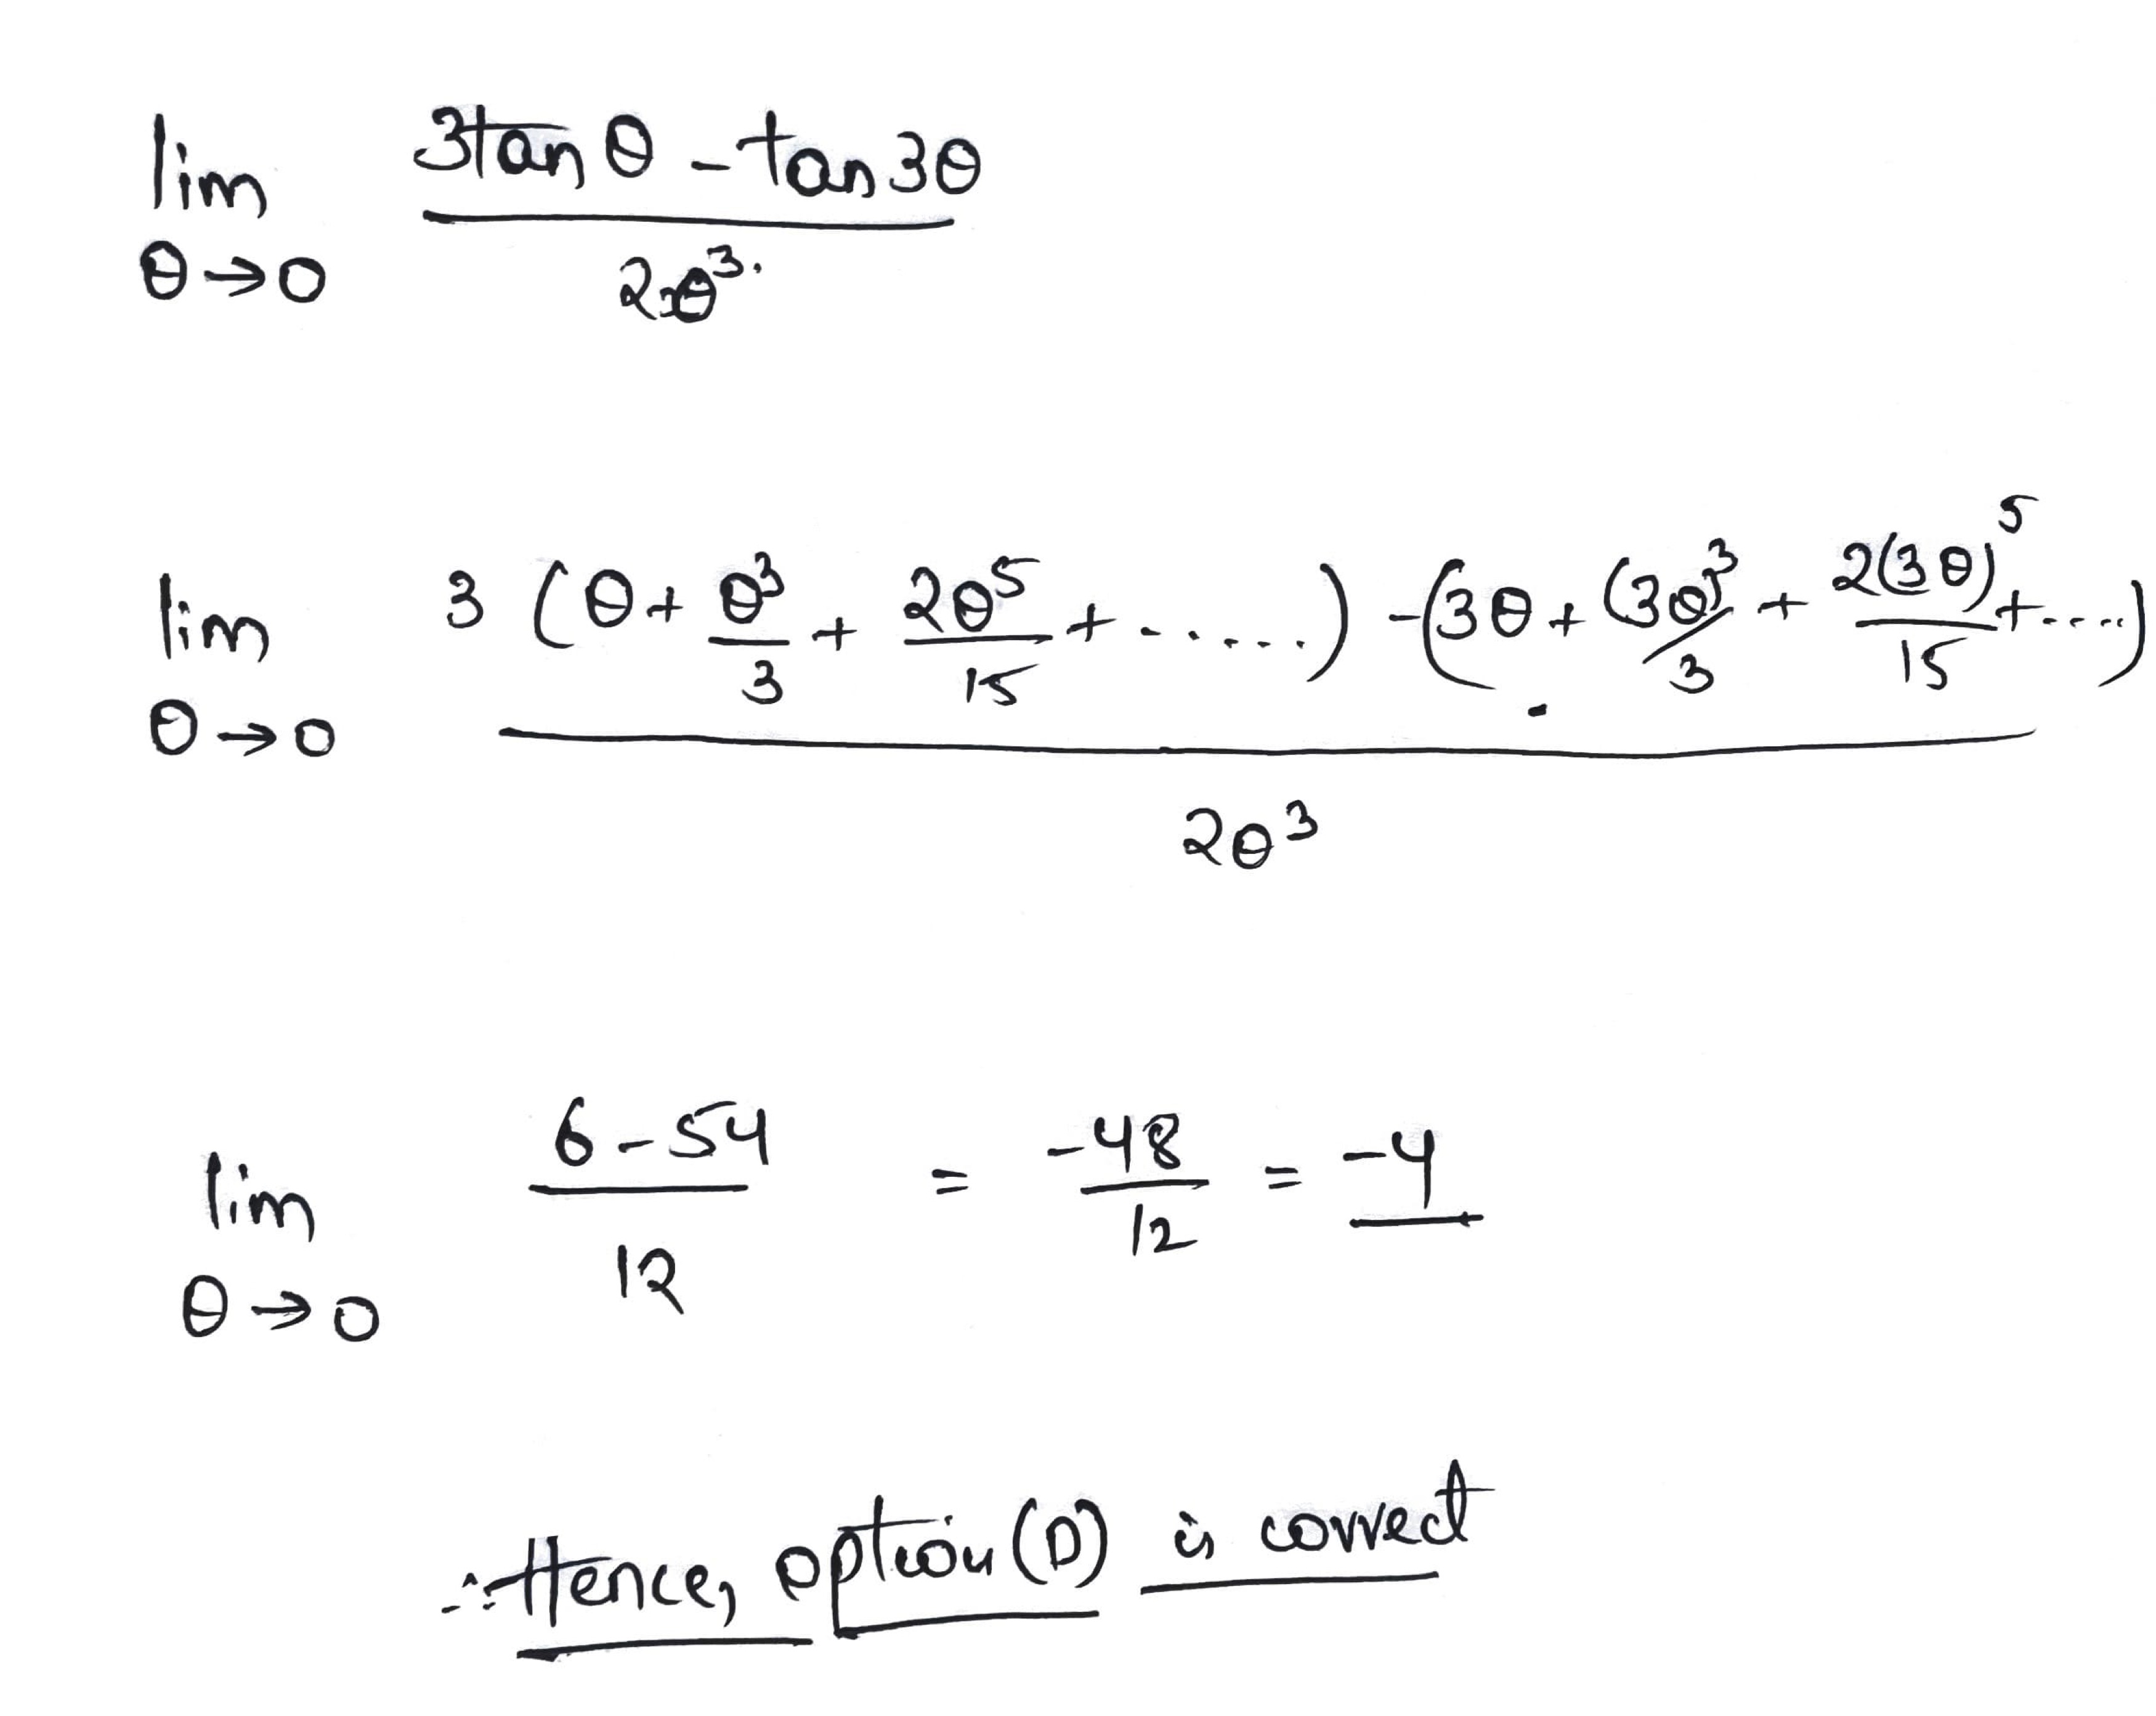 lim θ→0 (3tan θ - tan 3θ) / 2θ³
lim θ→0 [3 (θ + θ³/3 + 2θ⁵/15 + ......) - (3θ + (3θ)³/3 + 2(3θ)⁵/15 + ....)] / 2θ³
lim θ→0 (6 - 54)/12 = -48/12 = -4
∴ Hence, option (D) is correct